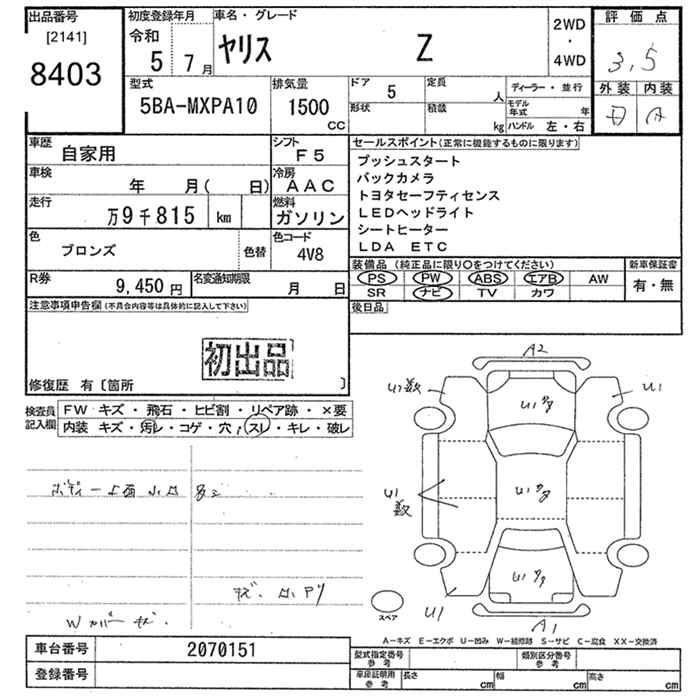 出品番号
[2141]
8403
初度登録年月
令和
5 7月
車名・グレード
ヤリス Z
2WD
・
4WD
評価点
3.5
外装 内装
A
型式
5BA-MXPA10
排気量
1500
CC
ドア 5
定員 人
形状
積載 kg
ディーラー・並行
モデル年式 年
ハンドル 左・右
車歴
自家用
シフト
F5
車検
年 月( 日)
冷房
AAC
走行
万9千815 km
燃料
ガソリン
色
ブロンズ
色替
色コード
4V8
R券
9,450円
名変通知期限
月 日
セールスポイント(正常に機能するものに限ります)
プッシュスタート
バックカメラ
トヨタセーフティセンス
LEDヘッドライト
シートヒーター
LDA ETC
装備品(純正品に限り〇をつけてください)
PS PW ABS エアB AW
SR ナビ TV カワ
新車保証書
有・無
後日品
注意事項申告欄(不具合内容等は具体的に記入して下さい)
初出品
修復歴 有〔箇所 〕
検査員
記入欄
FW キズ・飛石・ヒビ割・リペア跡・×要
内装 キズ・汚レ・コゲ・穴・スレ・キレ・破レ
ボディー上面小凹
A2
U1数
U1
U1
U1
U1数
U1
U1
A1
スペア
A-キズ E-エクボ U-凹み W-補修跡 S-サビ C-腐食 XX-交換済
車台番号
2070151
登録番号
型式指定番号
参考
類別区分番号
参考
車庫証明用
参考
長さ cm
幅 cm
高さ cm